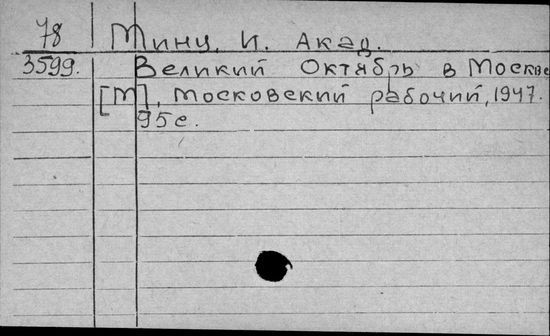 78 Минц, И. Акад.
3599. Великий Октябрь в Москве
[М], Московский рабочий, 1947.
95 с.